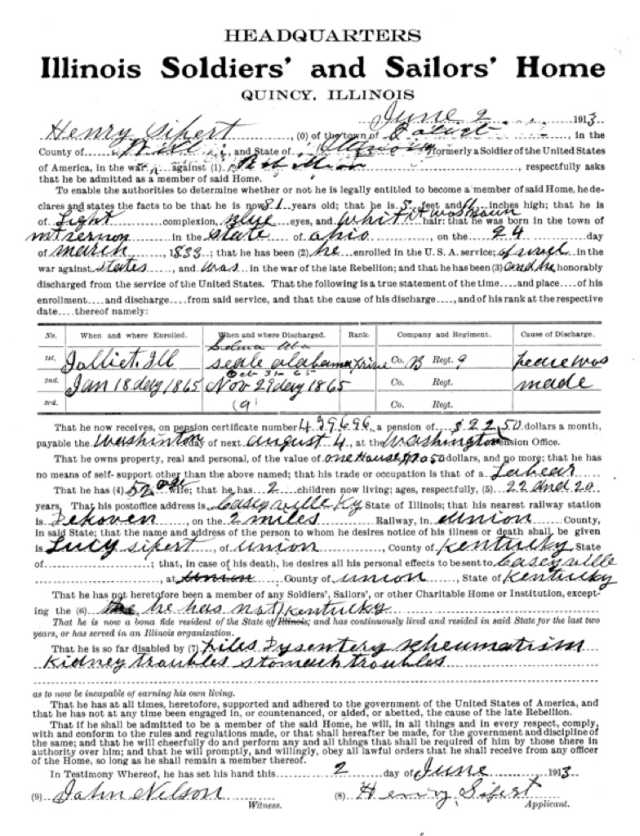 HEADQUARTERS
Illinois Soldiers' and Sailors' Home
QUINCY, ILLINOIS
June 2 1913
Henry Sipert, (0) of the town of Joliet in the
County of Will, and State of Illinois formerly a Soldier of the United States
of America, in the war against (1) , respectfully asks
that he be admitted as a member of said Home.
To enable the authorities to determine whether or not he is legally entitled to become a member of said Home, he de-
clares and states the facts to be that he is now 81 years old; that he is 5 feet and inches high; that he is
of Light complexion, Blue eyes, and hair: that he was born in the town of
mt vernon in the State of ohio, on the 24 day
of march, 1833; that he has been (2) he enrolled in the U. S. A. service; in the
war against states, and was in the war of the late Rebellion; and that he has been (3) and he honorably
discharged from the service of the United States. That the following is a true statement of the time and place of his
enrollment and discharge from said service, and that the cause of his discharge, and of his rank at the respective
date thereof namely:
No. When and where Enrolled. When and where Discharged. Rank. Company and Regiment. Cause of Discharge.
Selma Ala
1st. Jolliet Ill seale alabama Co. B Regt. 9 peace was
Oct 31 65
2nd. Jan 18 day 1865 Nov 29 day 1865 Co. Regt. made
3rd. (9) Co. Regt.
That he now receives, on pension certificate number 439696, a pension of $22,50 dollars a month,
payable the washinton of next august 4, at the washington Pension Office.
That he owns property, real and personal, of the value of one House dollars, and no more; that he has
no means of self-support other than the above named; that his trade or occupation is that of a Labear
That he has (4) 52 age wife; that he has 2 children now living; ages, respectively, (5) 22 and 20
years. That his postoffice address is Caseyville Ky State of Illinois; that his nearest railway station
is Dekoven on the 2 miles Railway, in union County,
in said State; that the name and address of the person to whom he desires notice of his illness or death shall be given
is Lucy Sipert, of union, County of Kentucky State
of ; that, in case of his death, he desires all his personal effects to be sent to Caseyville
, at Union County of union, State of Kentucky
That he has not heretofore been a member of any Soldiers', Sailors', or other Charitable Home or Institution, except-
ing the (6) he has not Kentucky
That he is now a bona fide resident of the State of Illinois; and has continuously lived and resided in said State for the last two
years, or has served in an Illinois organization.
That he is so far disabled by (7) Piles Dysentery Rheumatism
Kidney troubles stomach troubles
as to now be incapable of earning his own living.
That he has at all times, heretofore, supported and adhered to the government of the United States of America, and
that he has not at any time been engaged in, or countenanced, or aided, or abetted, the cause of the late Rebellion.
That if he shall be admitted to be a member of the said Home, he will, in all things and in every respect, comply,
with and conform to the rules and regulations made, or that shall hereafter be made, for the government and discipline of
the same; and that he will cheerfully do and perform any and all things that shall be required of him by those there in
authority over him; and that he will promptly, and willingly, obey all lawful orders that he shall receive from any officer
of the Home, so long as he shall remain a member thereof.
In Testimony Whereof, he has set his hand this 2 day of June 1913
(9) John Nelson (8) Henry Sipert
Witness. Applicant.